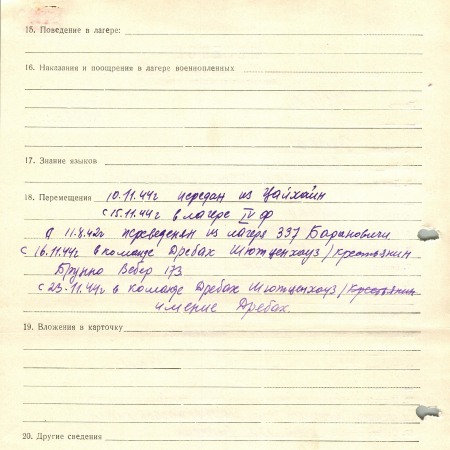 15. Поведение в лагере:
16. Наказания и поощрения в лагере военнопленных
17. Знание языков
18. Перемещения 10.11.44г передан из Цайхайн
с 15.11.44г в лагере IV ф
11.8.42г переведен из лагеря 337 Барановичи
с 16.11.44г в команде Дребах Шютценхауз / крестьянин
Бруно Вебер 173
с 23.11.44г в команде Дребах Шютценхауз / крестьянин
имение Дребах.
19. Вложения в карточку
20. Другие сведения